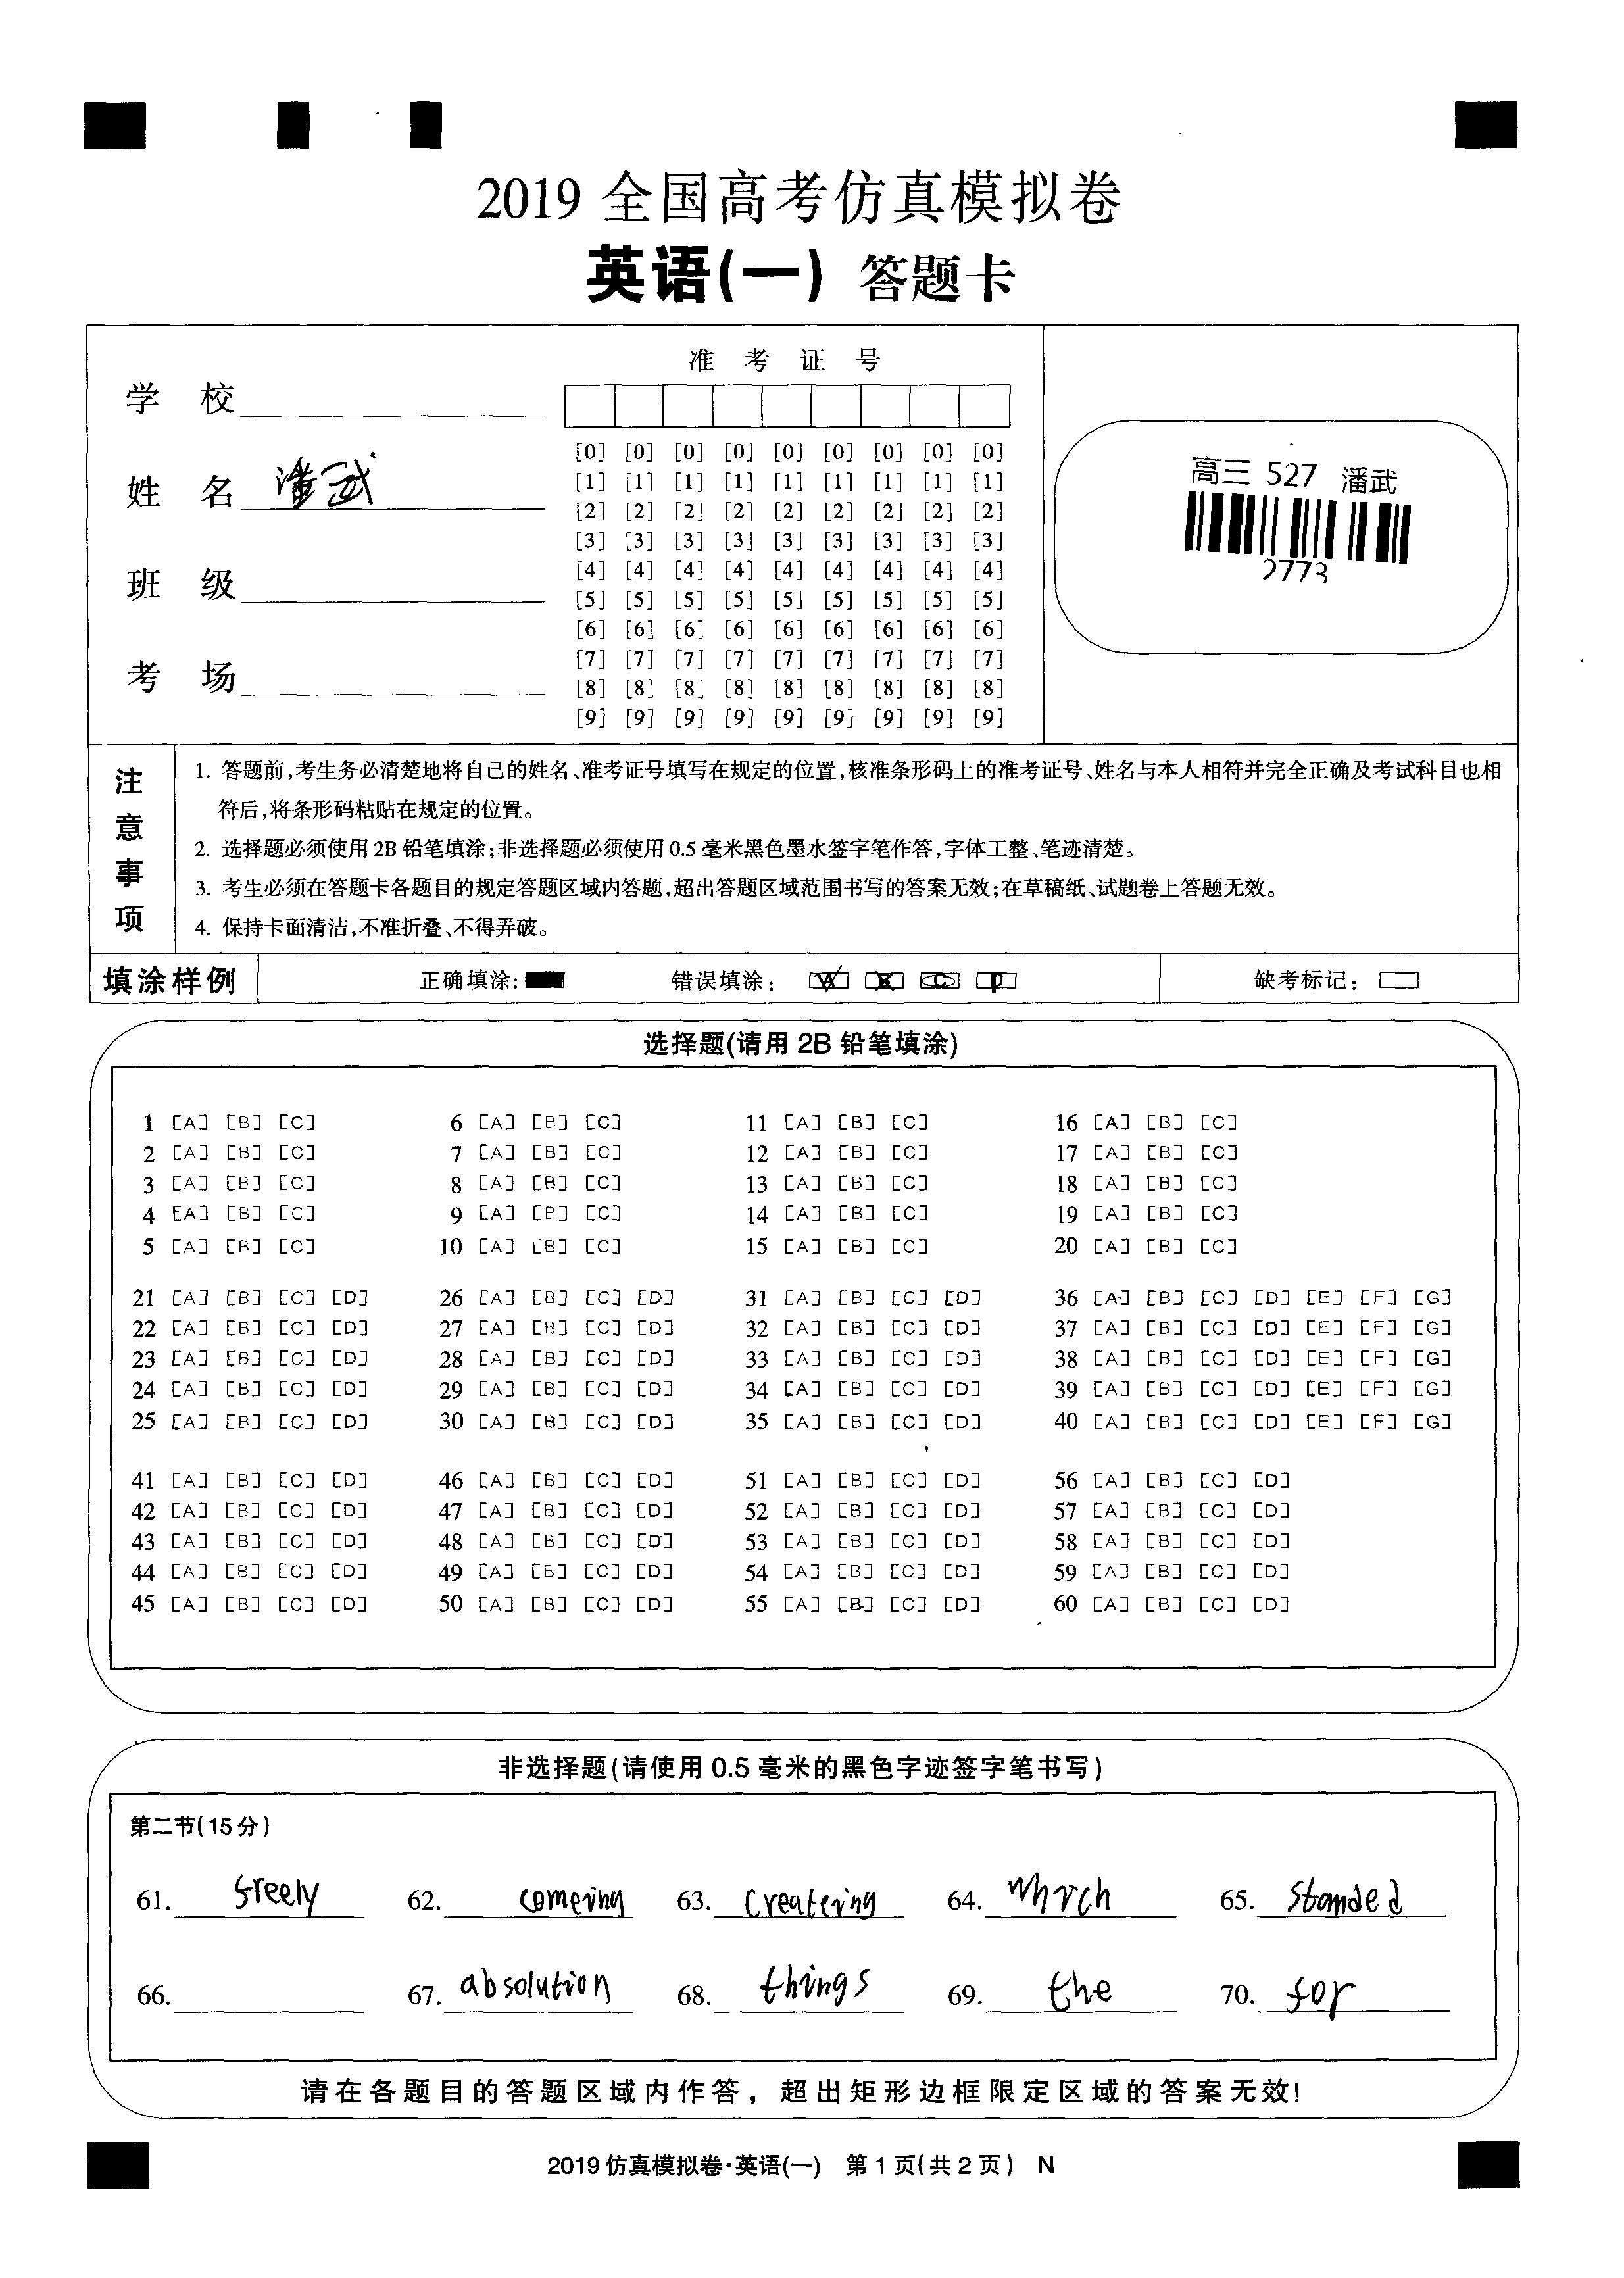 2019 全国高考仿真模拟卷
英语(一) 答题卡
准 考 证 号
学 校
姓 名 潘武
班 级
考 场
[0] [0] [0] [0] [0] [0] [0] [0] [0]
[1] [1] [1] [1] [1] [1] [1] [1] [1]
[2] [2] [2] [2] [2] [2] [2] [2] [2]
[3] [3] [3] [3] [3] [3] [3] [3] [3]
[4] [4] [4] [4] [4] [4] [4] [4] [4]
[5] [5] [5] [5] [5] [5] [5] [5] [5]
[6] [6] [6] [6] [6] [6] [6] [6] [6]
[7] [7] [7] [7] [7] [7] [7] [7] [7]
[8] [8] [8] [8] [8] [8] [8] [8] [8]
[9] [9] [9] [9] [9] [9] [9] [9] [9]
高三 527 潘武
2773
注意事项
1. 答题前,考生务必清楚地将自己的姓名、准考证号填写在规定的位置,核准条形码上的准考证号、姓名与本人相符并完全正确及考试科目也相
符后,将条形码粘贴在规定的位置。
2. 选择题必须使用2B铅笔填涂;非选择题必须使用0.5毫米黑色墨水签字笔作答,字体工整、笔迹清楚。
3. 考生必须在答题卡各题目的规定答题区域内答题,超出答题区域范围书写的答案无效;在草稿纸、试题卷上答题无效。
4. 保持卡面清洁,不准折叠、不得弄破。
填涂样例 正确填涂: 错误填涂: 缺考标记:
选择题(请用 2B 铅笔填涂)
1 [A] [B] [C] 6 [A] [B] [C] 11 [A] [B] [C] 16 [A] [B] [C]
2 [A] [B] [C] 7 [A] [B] [C] 12 [A] [B] [C] 17 [A] [B] [C]
3 [A] [B] [C] 8 [A] [B] [C] 13 [A] [B] [C] 18 [A] [B] [C]
4 [A] [B] [C] 9 [A] [B] [C] 14 [A] [B] [C] 19 [A] [B] [C]
5 [A] [B] [C] 10 [A] [B] [C] 15 [A] [B] [C] 20 [A] [B] [C]
21 [A] [B] [C] [D] 26 [A] [B] [C] [D] 31 [A] [B] [C] [D] 36 [A] [B] [C] [D] [E] [F] [G]
22 [A] [B] [C] [D] 27 [A] [B] [C] [D] 32 [A] [B] [C] [D] 37 [A] [B] [C] [D] [E] [F] [G]
23 [A] [B] [C] [D] 28 [A] [B] [C] [D] 33 [A] [B] [C] [D] 38 [A] [B] [C] [D] [E] [F] [G]
24 [A] [B] [C] [D] 29 [A] [B] [C] [D] 34 [A] [B] [C] [D] 39 [A] [B] [C] [D] [E] [F] [G]
25 [A] [B] [C] [D] 30 [A] [B] [C] [D] 35 [A] [B] [C] [D] 40 [A] [B] [C] [D] [E] [F] [G]
41 [A] [B] [C] [D] 46 [A] [B] [C] [D] 51 [A] [B] [C] [D] 56 [A] [B] [C] [D]
42 [A] [B] [C] [D] 47 [A] [B] [C] [D] 52 [A] [B] [C] [D] 57 [A] [B] [C] [D]
43 [A] [B] [C] [D] 48 [A] [B] [C] [D] 53 [A] [B] [C] [D] 58 [A] [B] [C] [D]
44 [A] [B] [C] [D] 49 [A] [B] [C] [D] 54 [A] [B] [C] [D] 59 [A] [B] [C] [D]
45 [A] [B] [C] [D] 50 [A] [B] [C] [D] 55 [A] [B] [C] [D] 60 [A] [B] [C] [D]
非选择题(请使用 0.5 毫米的黑色字迹签字笔书写)
第二节(15分)
61. freely 62. comeing 63. createing 64. which 65. standed
66. 67. absolution 68. things 69. the 70. for
请在各题目的答题区域内作答, 超出矩形边框限定区域的答案无效!
2019 仿真模拟卷·英语(一) 第 1 页(共 2 页) N